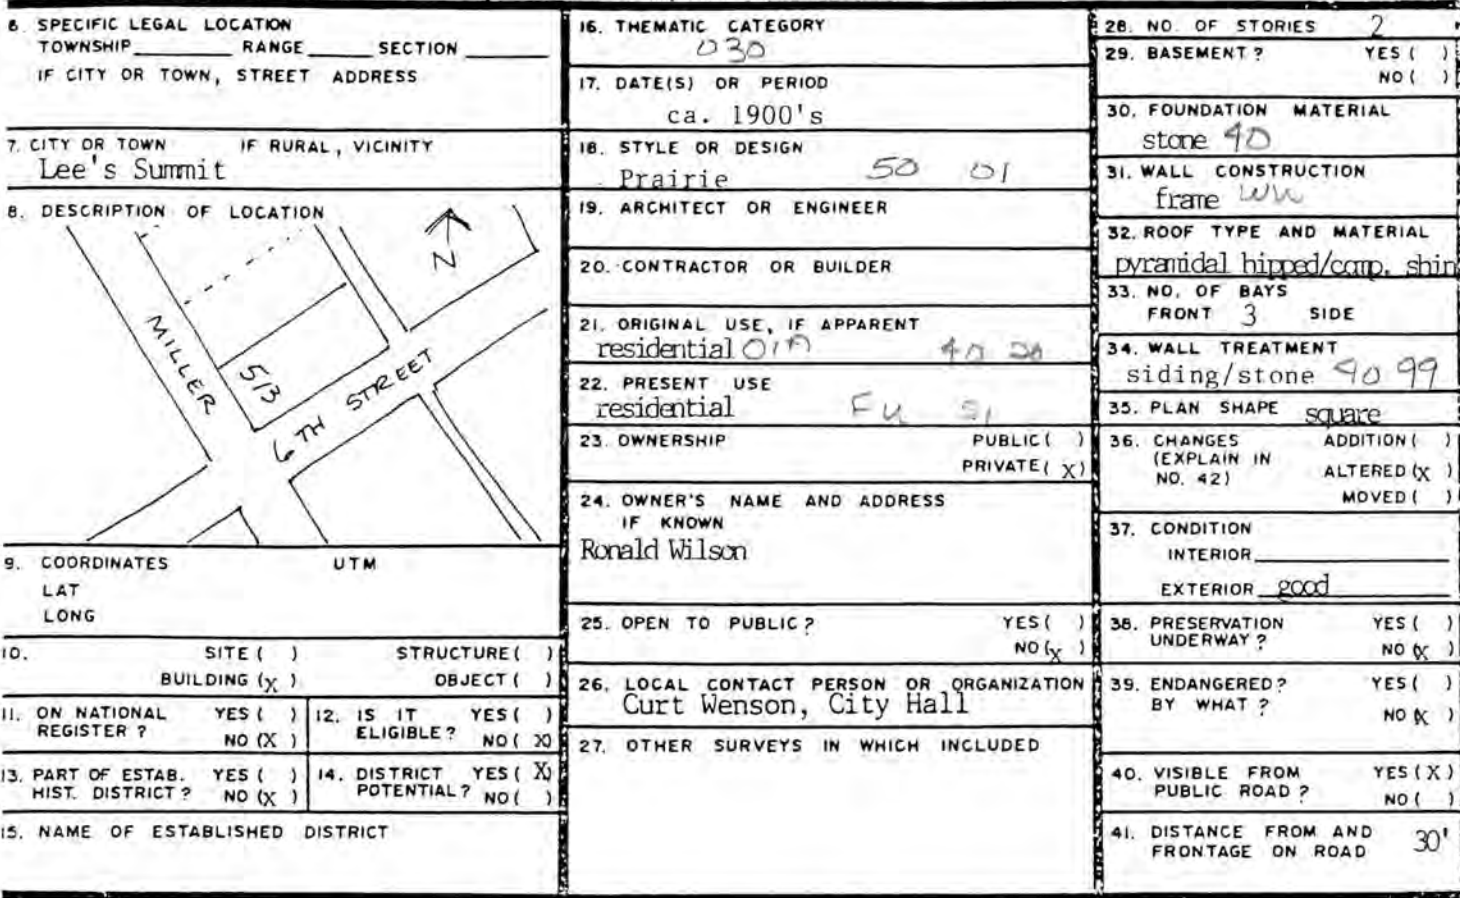 6. SPECIFIC LEGAL LOCATION
TOWNSHIP________ RANGE______ SECTION_______
IF CITY OR TOWN, STREET ADDRESS
7. CITY OR TOWN IF RURAL, VICINITY
Lee's Summit
8. DESCRIPTION OF LOCATION
N
MILLER
513
6TH STREET
9. COORDINATES UTM
LAT
LONG
10. SITE ( ) STRUCTURE ( )
BUILDING (X) OBJECT ( )
11. ON NATIONAL REGISTER? YES ( ) NO (X)
12. IS IT ELIGIBLE? YES ( ) NO (X)
13. PART OF ESTAB. HIST. DISTRICT? YES ( ) NO (X)
14. DISTRICT POTENTIAL? YES (X) NO ( )
15. NAME OF ESTABLISHED DISTRICT
16. THEMATIC CATEGORY
030
17. DATE(S) OR PERIOD
ca. 1900's
18. STYLE OR DESIGN
Prairie 50 01
19. ARCHITECT OR ENGINEER
20. CONTRACTOR OR BUILDER
21. ORIGINAL USE, IF APPARENT
residential 01A
22. PRESENT USE
residential
23. OWNERSHIP PUBLIC ( )
PRIVATE (X)
24. OWNER'S NAME AND ADDRESS
IF KNOWN
Ronald Wilson
25. OPEN TO PUBLIC? YES ( )
NO (X)
26. LOCAL CONTACT PERSON OR ORGANIZATION
Curt Wenson, City Hall
27. OTHER SURVEYS IN WHICH INCLUDED
28. NO. OF STORIES 2
29. BASEMENT? YES ( )
NO ( )
30. FOUNDATION MATERIAL
stone 40
31. WALL CONSTRUCTION
frame
32. ROOF TYPE AND MATERIAL
pyramidal hipped/comp. shin
33. NO. OF BAYS
FRONT 3 SIDE
34. WALL TREATMENT
siding/stone 90 99
35. PLAN SHAPE square
36. CHANGES ADDITION ( )
(EXPLAIN IN NO. 42) ALTERED (X)
MOVED ( )
37. CONDITION
INTERIOR____________
EXTERIOR good
38. PRESERVATION UNDERWAY? YES ( )
NO (X)
39. ENDANGERED? YES ( )
BY WHAT? NO (X)
40. VISIBLE FROM PUBLIC ROAD? YES (X)
NO ( )
41. DISTANCE FROM AND
FRONTAGE ON ROAD 30'